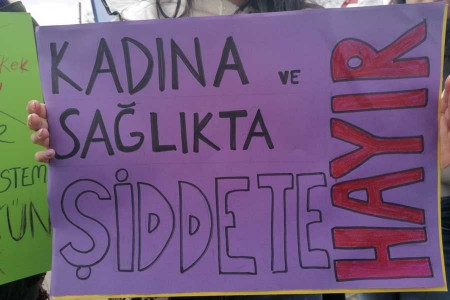 KADINA VE
SAĞLIKTA
ŞİDDETE
HAYIR
STEM
ÜN